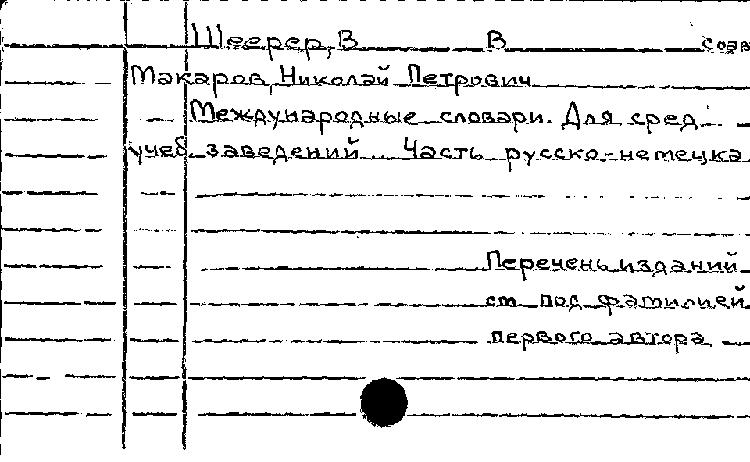 Шеерер, В В соав
Макаров, Николай Петрович
Международные словари. Для сред.
учеб. заведений. Часть русско-немецка
Перечень изданий
см под фамилией
первого автора